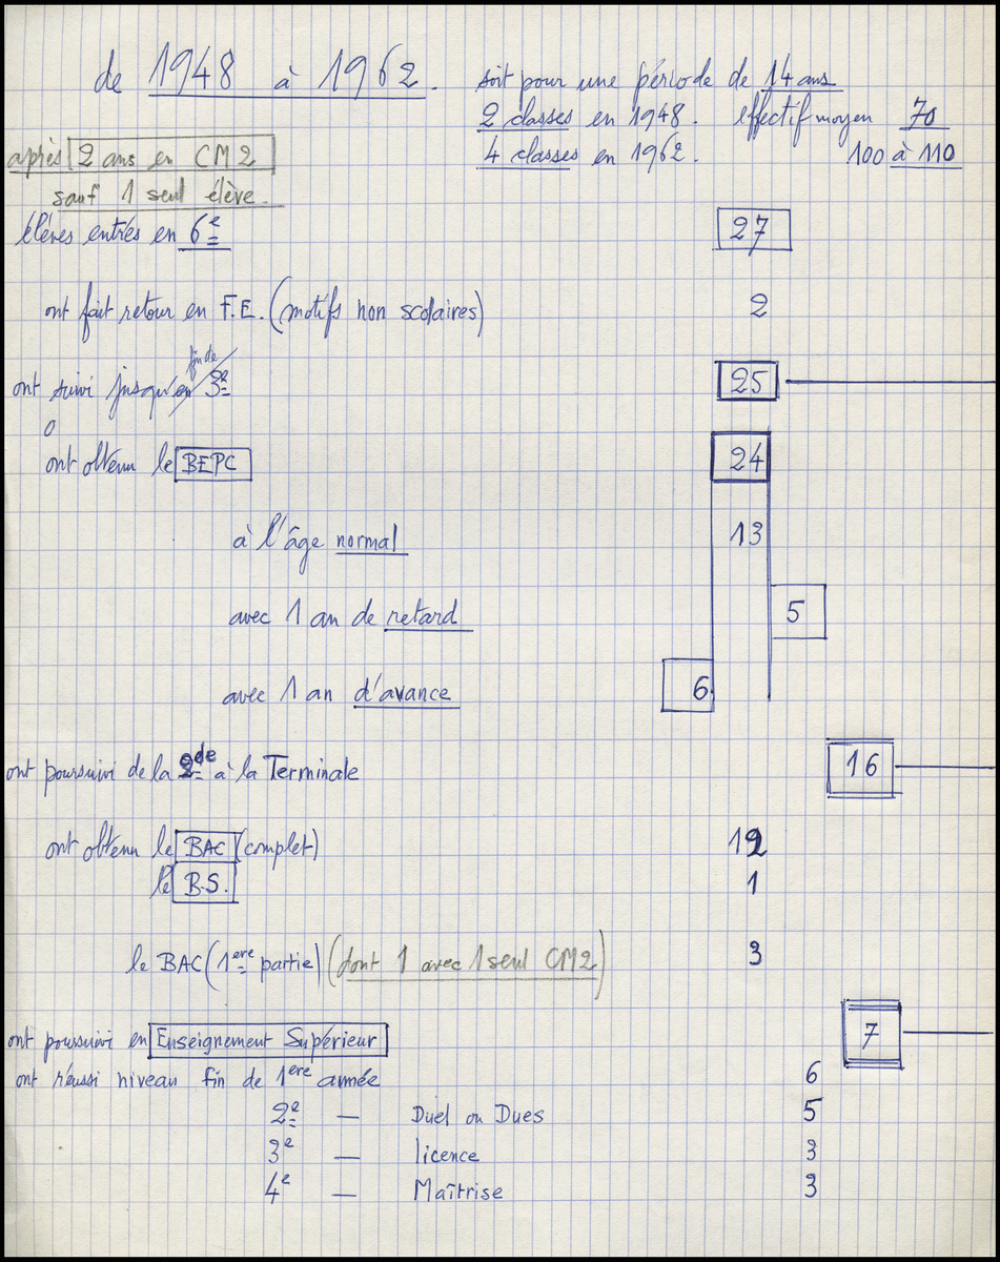 de 1948 à 1962. soit pour une période de 14 ans
2 classes en 1948. effectif moyen 70
4 classes en 1962. 100 à 110
après 2 ans en CM2
sauf 1 seul élève.
élèves entrés en 6e 27
ont fait retour en F.E. (motifs non scolaires) 2
fin de
ont suivi jusqu'en 3e 25
o
ont obtenu le BEPC 24
à l'âge normal 13
avec 1 an de retard 5
avec 1 an d'avance 6
ont poursuivi de la 2de à la Terminale 16
ont obtenu le BAC (complet) 12
le B.S. 1
le BAC (1ere partie) (dont 1 avec 1 seul CM2) 3
ont poursuivi en Enseignement Supérieur 7
ont réussi niveau fin de 1ere année 6
2e — Duel ou Dues 5
3e — licence 3
4e — Maîtrise 3